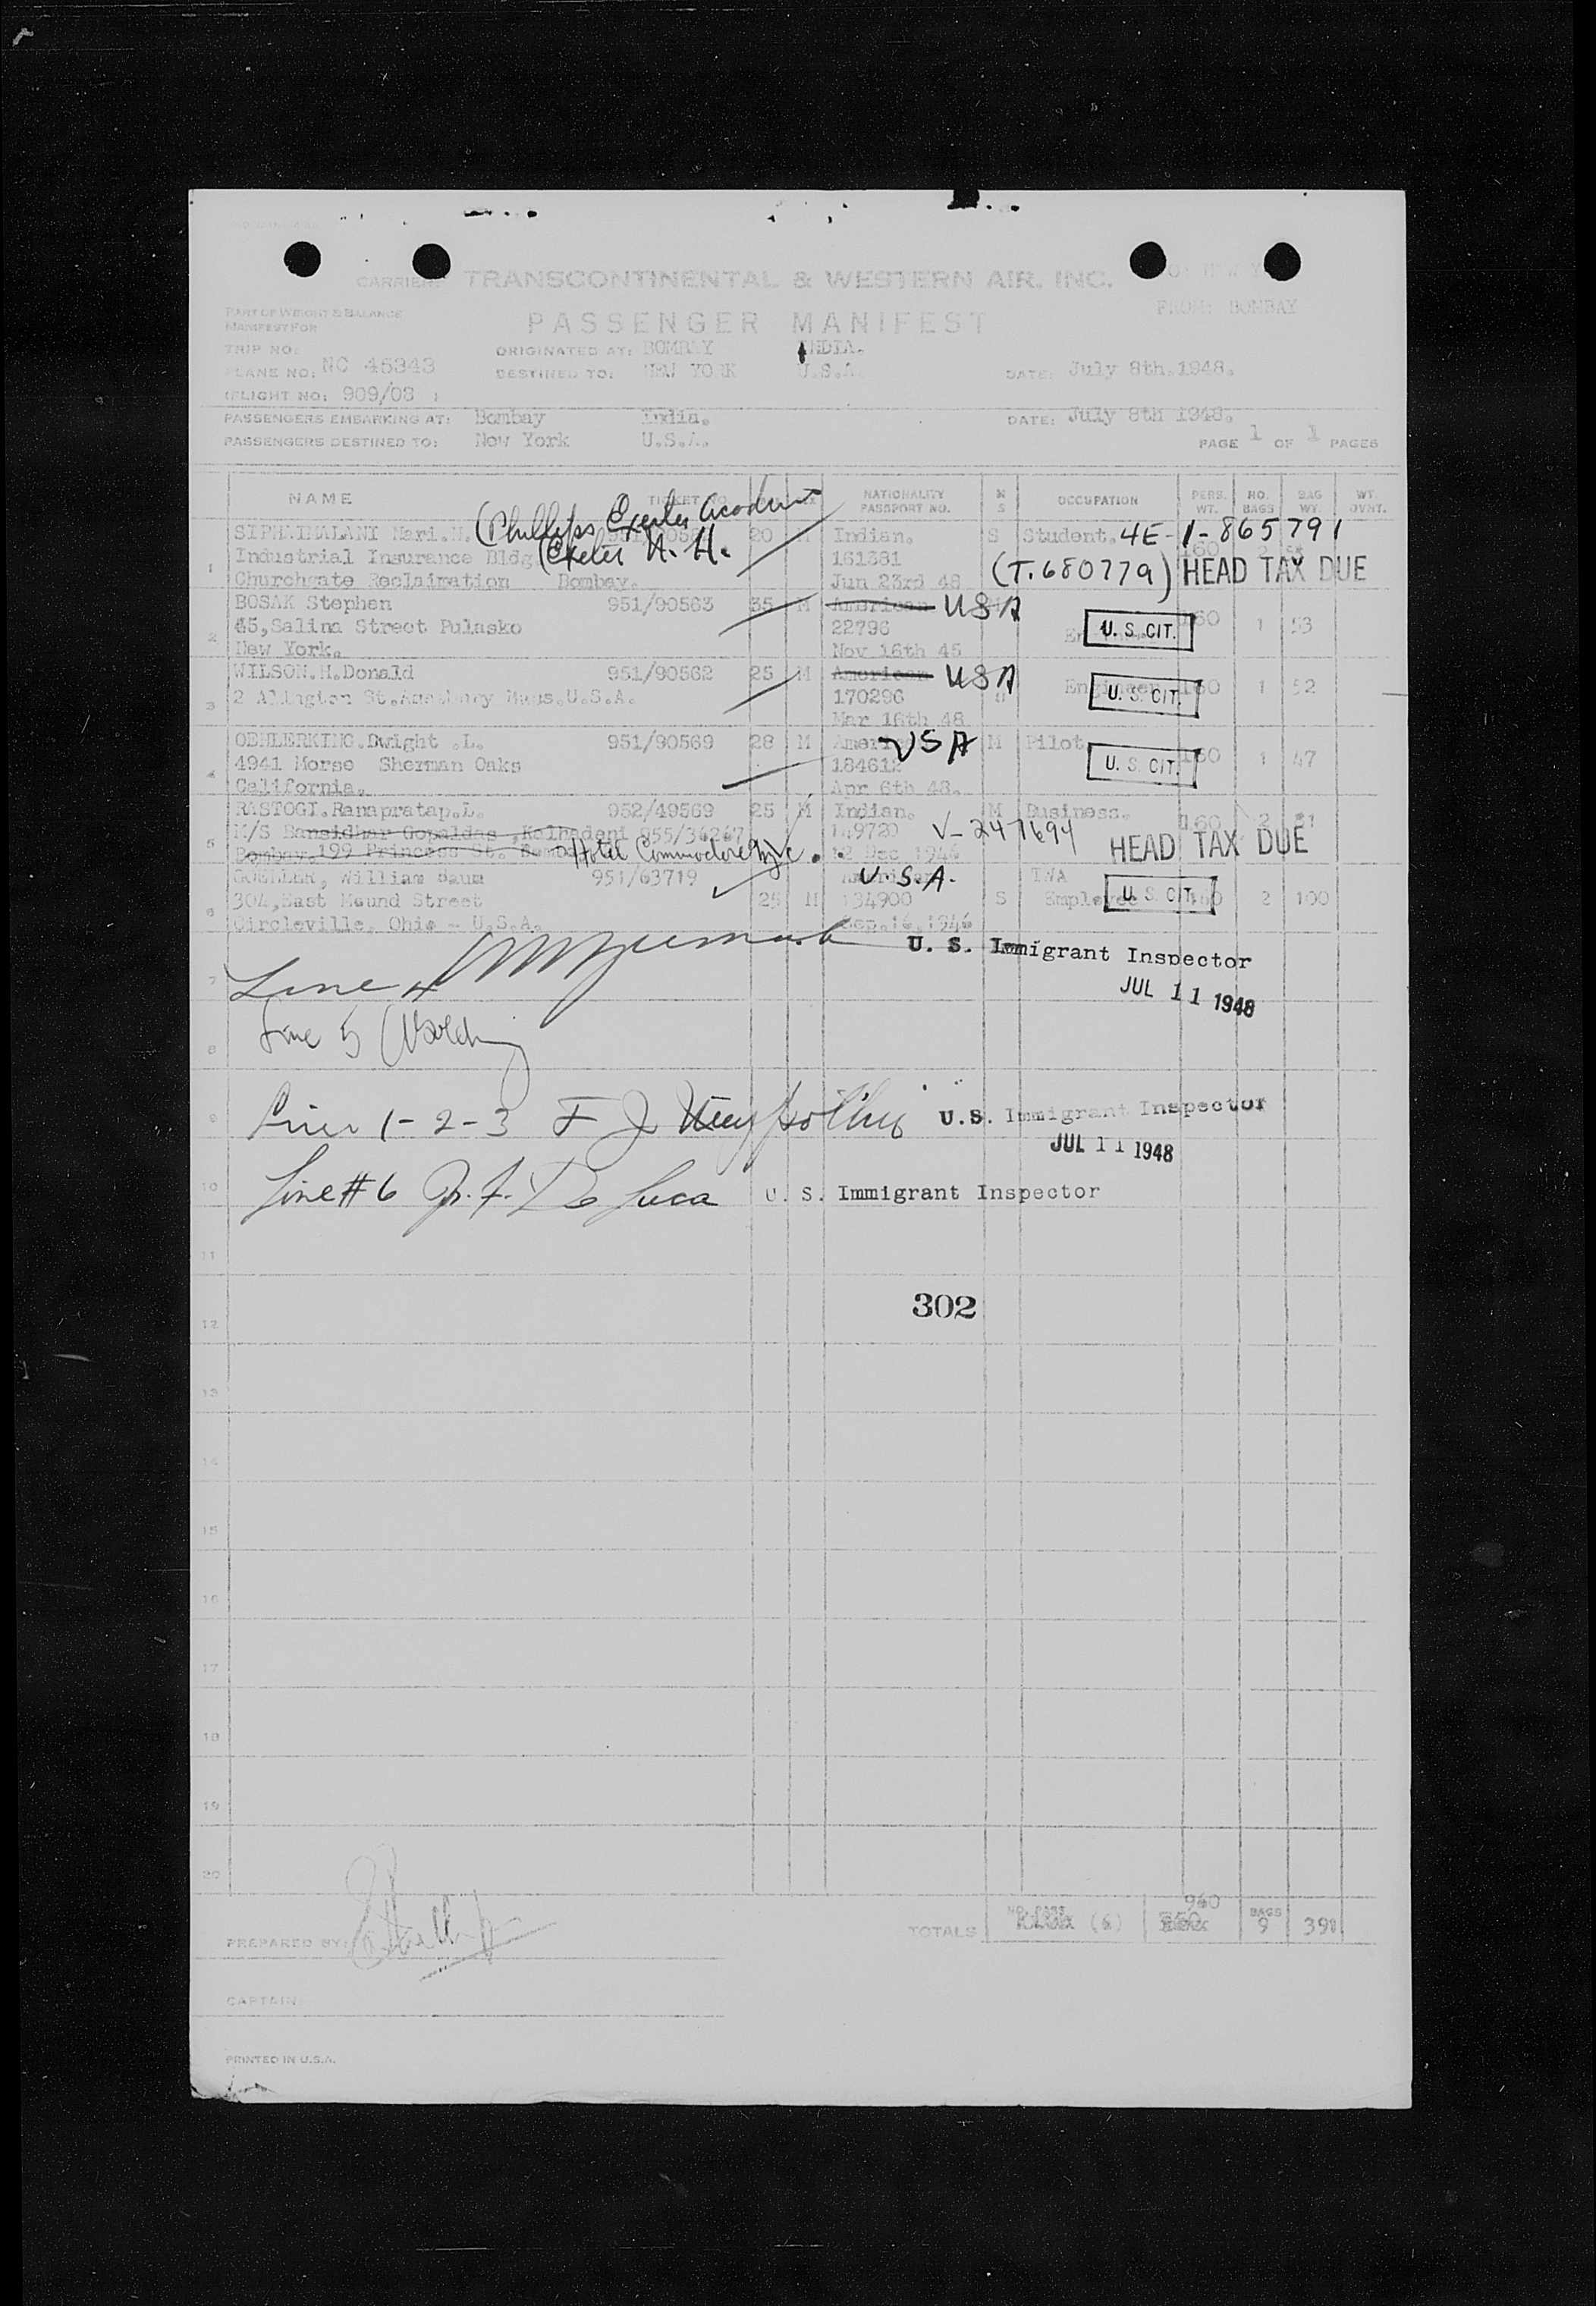 CARRIER: TRANSCONTINENTAL & WESTERN AIR, INC.
FROM: BOMBAY
PART OF WEIGHT & BALANCE
MANIFEST FOR
PASSENGER MANIFEST
TRIP NO:
ORIGINATED AT: BOMBAY INDIA.
PLANE NO: NC 45343
DESTINED TO: NEW YORK U.S.A.
DATE: July 8th.1948.
(FLIGHT NO: 909/08 )
PASSENGERS EMBARKING AT: Bombay India.
DATE: July 8th 1948.
PASSENGERS DESTINED TO: New York U.S.A.
PAGE 1 OF 1 PAGES
NAME TICKET NO. NATIONALITY PASSPORT NO. M S OCCUPATION PERS. WT. NO. BAGS BAG WT. WT. OVHT.
(Phillips Exeter Academy
Exeter N. H.
1 20 M Indian. S Student. 4E-1-865791
Industrial Insurance Bldg 161381 160 2
Churchgate Reclaimation Bombay. Jun 23rd 48 (T.680779) HEAD TAX DUE
2 BOSAK Stephen 951/90563 35 M American USA
45,Salina Street Pulasko 22796 U.S.CIT. 160 1 53
New York. Nov 16th 45
3 WILSON.H.Donald 951/90562 25 M American USA
2 St. Mass.U.S.A. 170296 Engineer U.S.CIT. 160 1 52
Mar 16th 48
4 OEHLERKING.Dwight .L. 951/90569 28 M American USA M Pilot
4941 Morse Sherman Oaks 184612 U.S.CIT. 160 1 47
California. Apr 6th 48.
5 RASTOGI.Ranapratap.L. 952/49569 25 M Indian. M Business.
M/S Bansidhar Gopaldas ,Kalbadevi 955/36267 149720 V-247694 160 2 81
Bombay.199 Princess St. Bombay Hotel Commodore NYC. 12 Dec 1946 HEAD TAX DUE
6 William Baum 951/63719 American U.S.A. TWA
304,East Mound Street 25 M 134900 S Employee U.S.CIT. 160 2 100
Circleville, Ohio - U.S.A. Sep.16.1946
7 Line 4 U. S. Immigrant Inspector
JUL 11 1948
8 Line 5
9 Lines 1-2-3 F J U.S. Immigrant Inspector
JUL 11 1948
10 Line #6 De Luca U. S. Immigrant Inspector
11
302
12
13
14
15
16
17
18
19
20
PREPARED BY:
TOTALS NO. PASS (6) 960 BAGS 9 391
CAPTAIN:
PRINTED IN U.S.A.